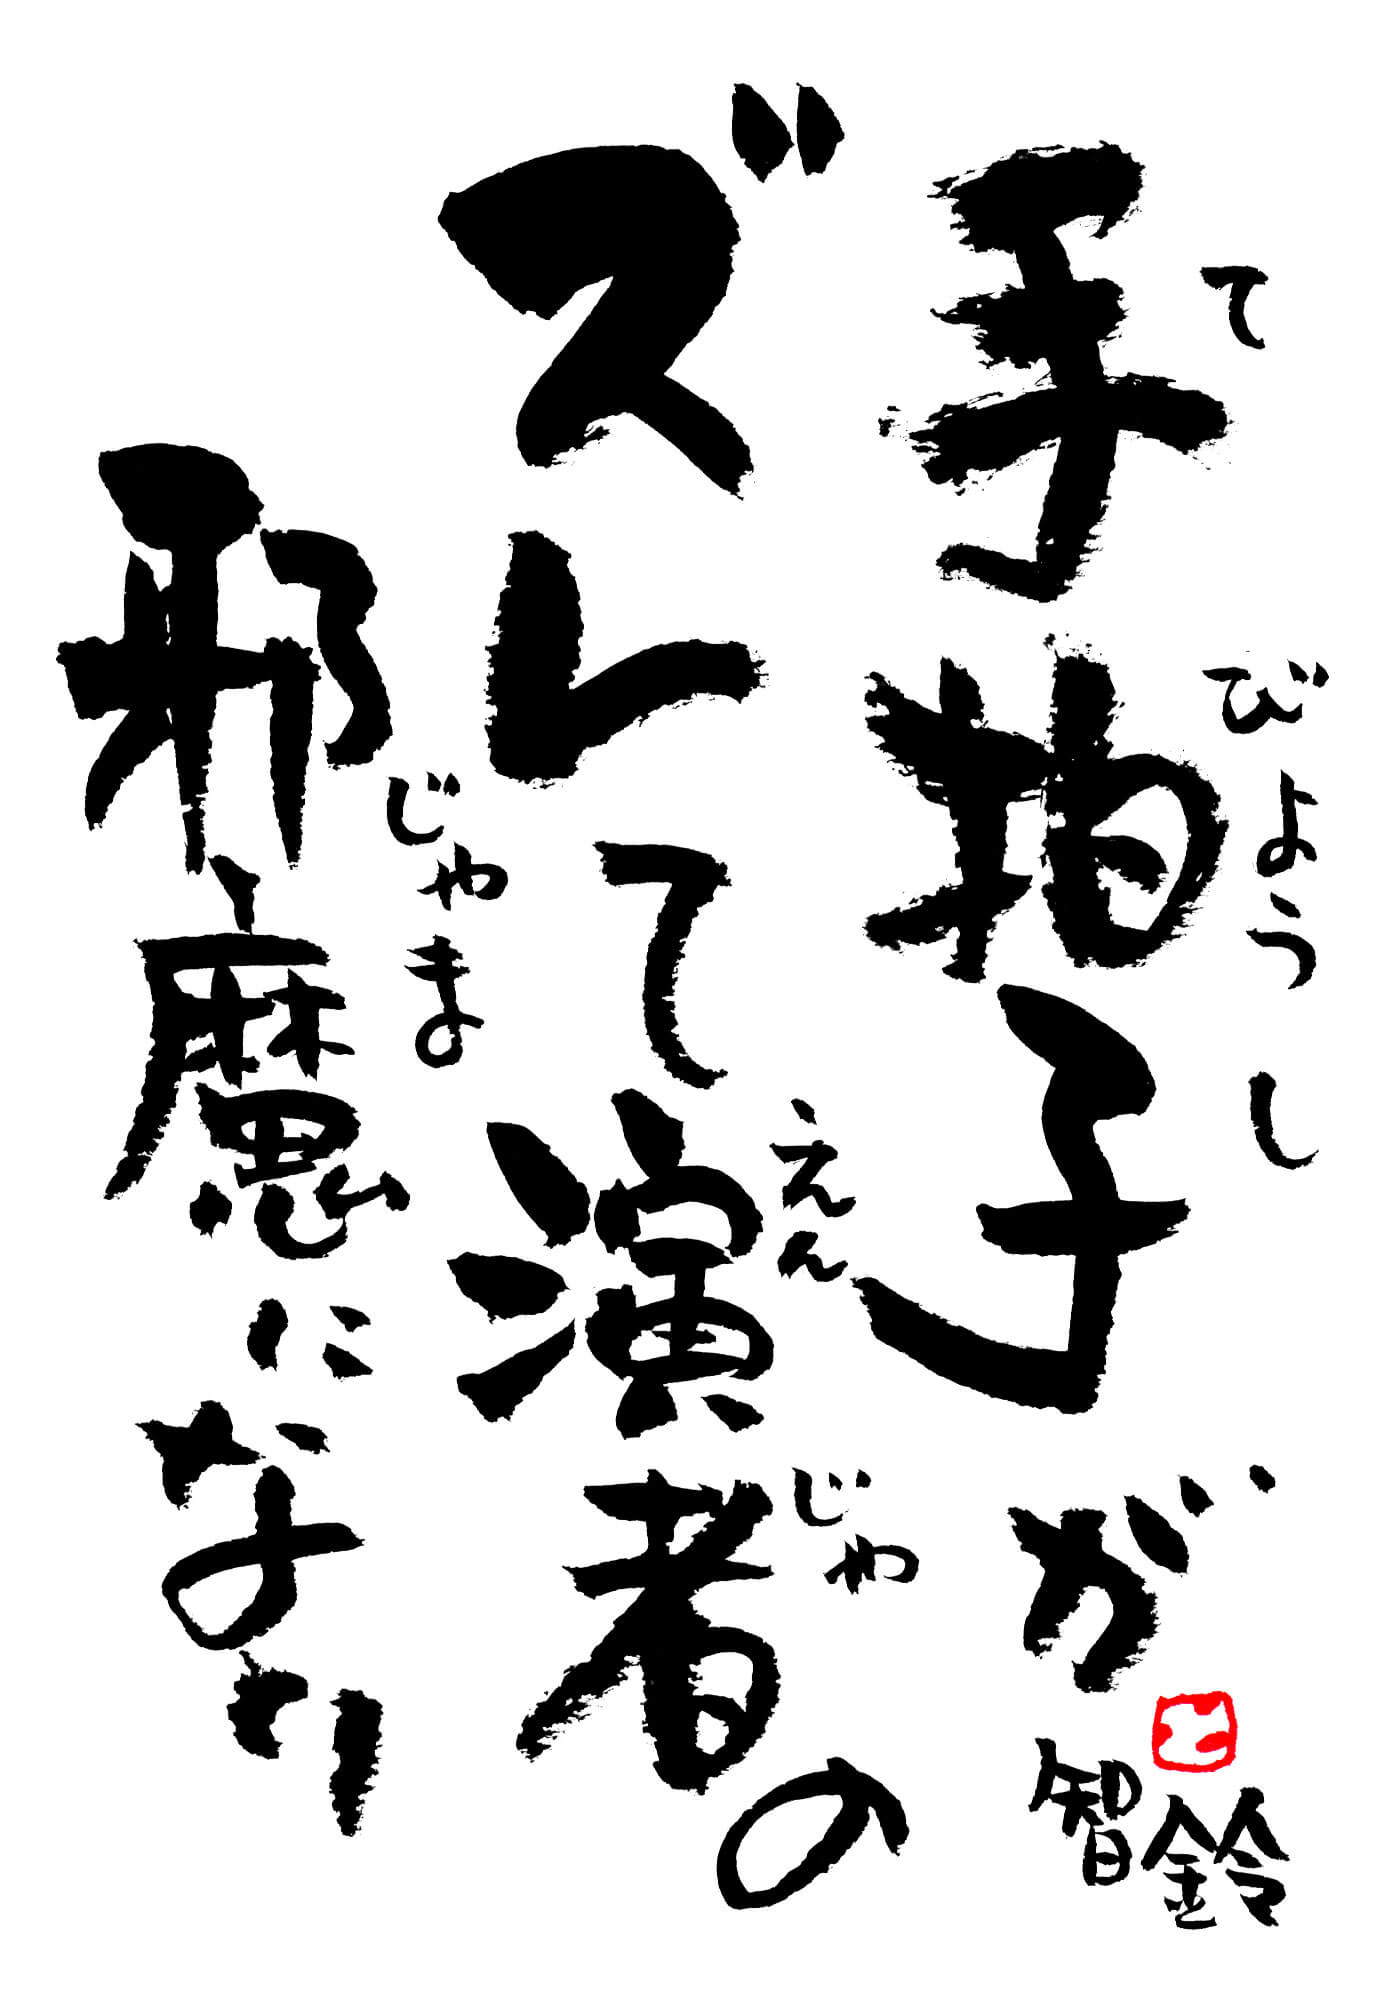 手拍子が
てびょうし
ズレて演者の
えんじゃ
邪魔になり
じゃま
智鈴